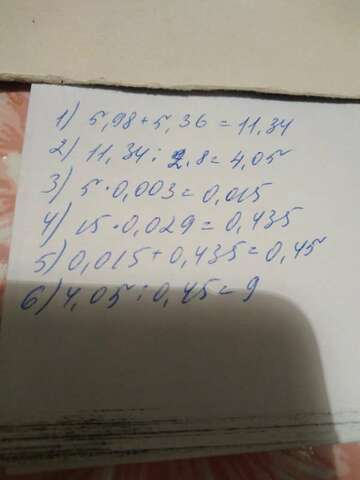 1) 5,98+5,36=11,34
2) 11,34:2,8=4,05
3) 5·0,003=0,015
4) 15·0,029=0,435
5) 0,015+0,435=0,45
6) 4,05:0,45=9